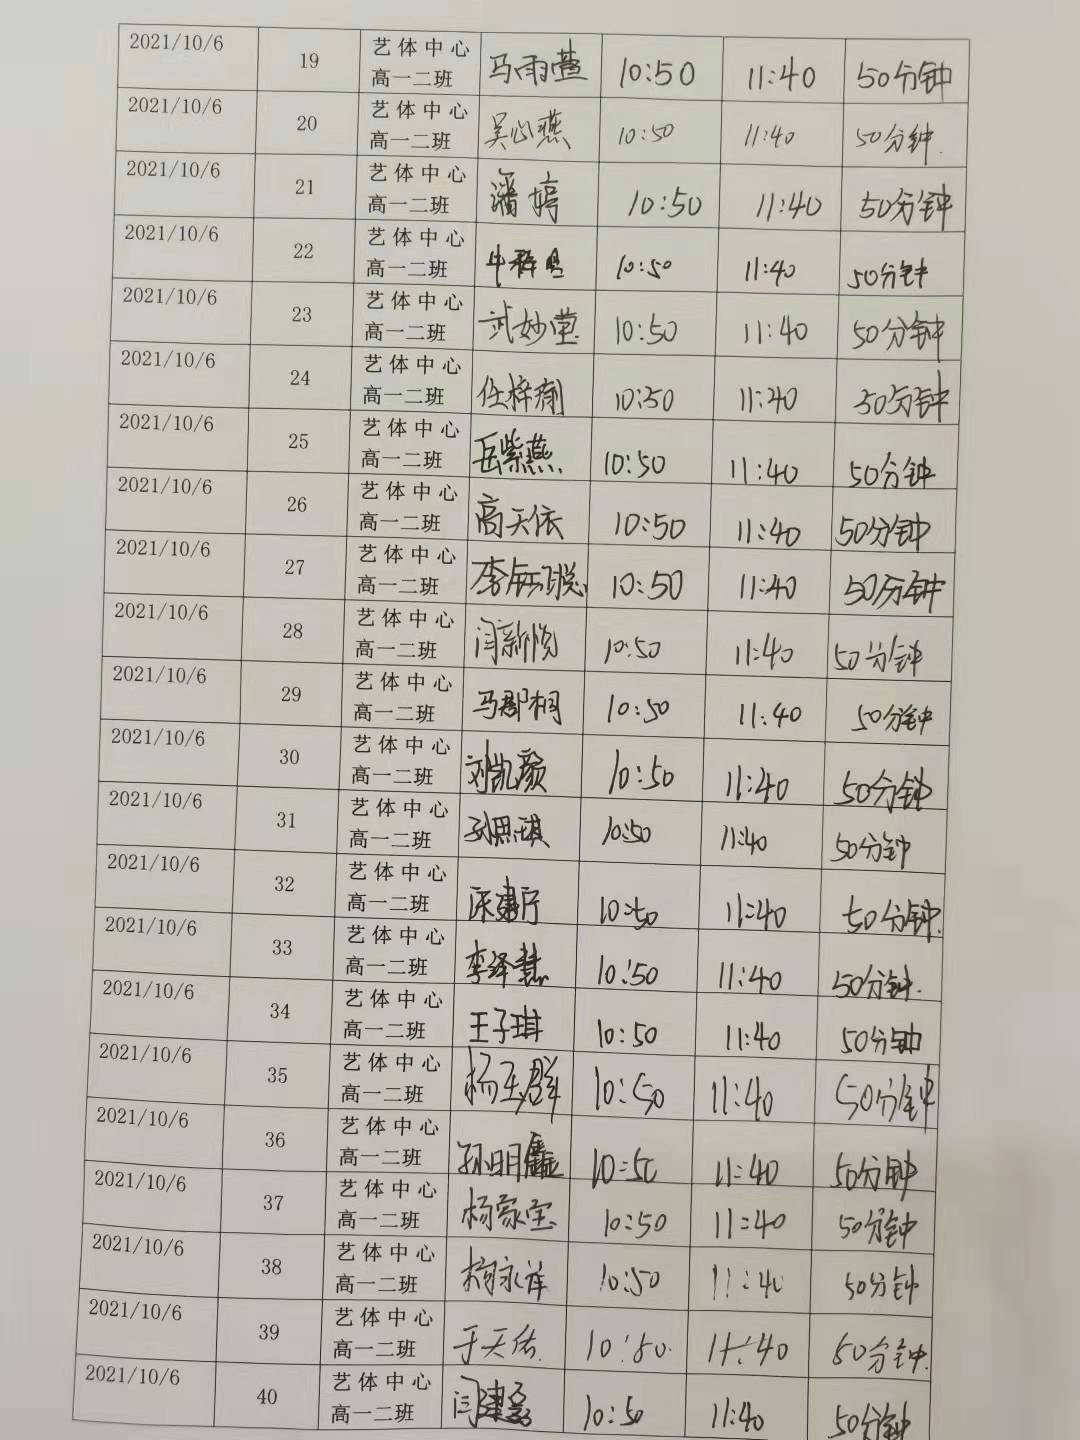 2021/10/6 19 艺体中心 马雨萱 10:50 11:40 50分钟
高一二班
2021/10/6 20 艺体中心 吴心燕 10:50 11:40 50分钟.
高一二班
2021/10/6 21 艺体中心 潘婷 10:50 11:40 50分钟
高一二班
2021/10/6 22 艺体中心 10:50 11:40 50分钟
高一二班
2021/10/6 23 艺体中心 武妙莹 10:50 11:40 50分钟
高一二班
2021/10/6 24 艺体中心 任梓 10:50 11:40 50分钟
高一二班
2021/10/6 25 艺体中心 岳紫燕 10:50 11:40 50分钟
高一二班
2021/10/6 26 艺体中心 高天依 10:50 11:40 50分钟
高一二班
2021/10/6 27 艺体中心 李 10:50 11:40 50分钟
高一二班
2021/10/6 28 艺体中心 闫新悦 10:50 11:40 50分钟
高一二班
2021/10/6 29 艺体中心 马郡桐 10:50 11:40 50分钟
高一二班
2021/10/6 30 艺体中心 刘凯颜 10:50 11:40 50分钟
高一二班
2021/10/6 31 艺体中心 孙思琪 10:50 11:40 50分钟
高一二班
2021/10/6 32 艺体中心 10:50 11:40 50分钟.
高一二班
2021/10/6 33 艺体中心 李泽慧 10:50 11:40 50分钟.
高一二班
2021/10/6 34 艺体中心 王子琪 10:50 11:40 50分钟
高一二班
2021/10/6 35 艺体中心 杨玉群 10:50 11:40 50分钟
高一二班
2021/10/6 36 艺体中心 孙明 10:50 11:40 50分钟
高一二班
2021/10/6 37 艺体中心 杨家宝 10:50 11:40 50分钟
高一二班
2021/10/6 38 艺体中心 永祥 10:50 11:40 50分钟
高一二班
2021/10/6 39 艺体中心 于天佑. 10:50. 11:40 50分钟.
高一二班
2021/10/6 40 艺体中心 闫建 10:50 11:40 50分钟
高一二班